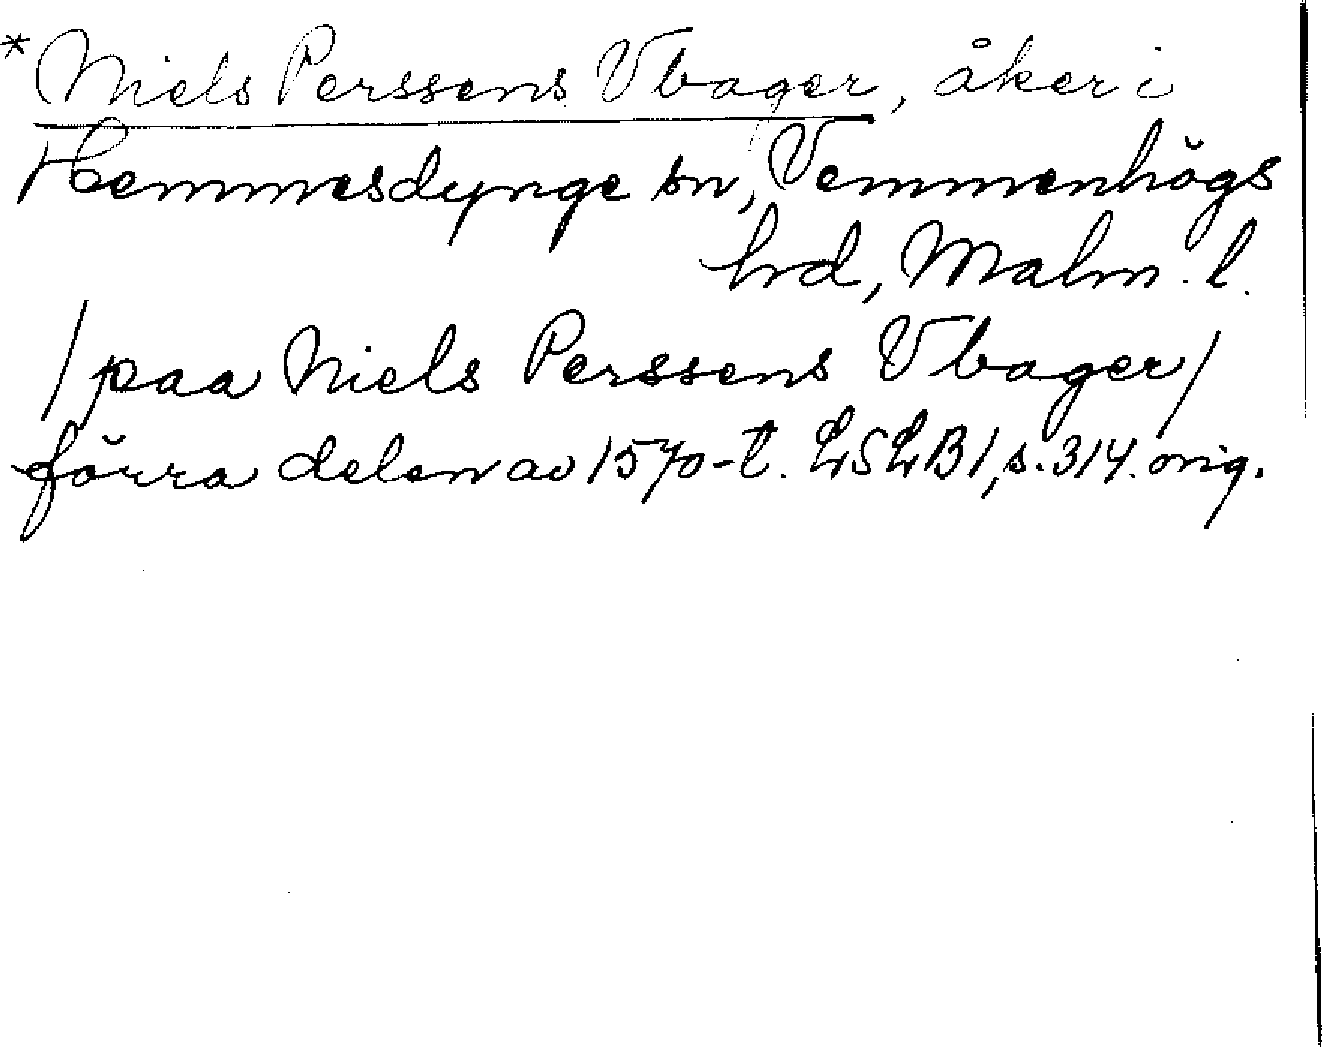 *Niels Perssens Vbager, åker i
Hemmesdynge sn, Vemmenhögs
hrd, Malm. l.
/paa Niels Perssens Vbager/
förra delen av 1570-t. LSLB1, s. 314. orig.